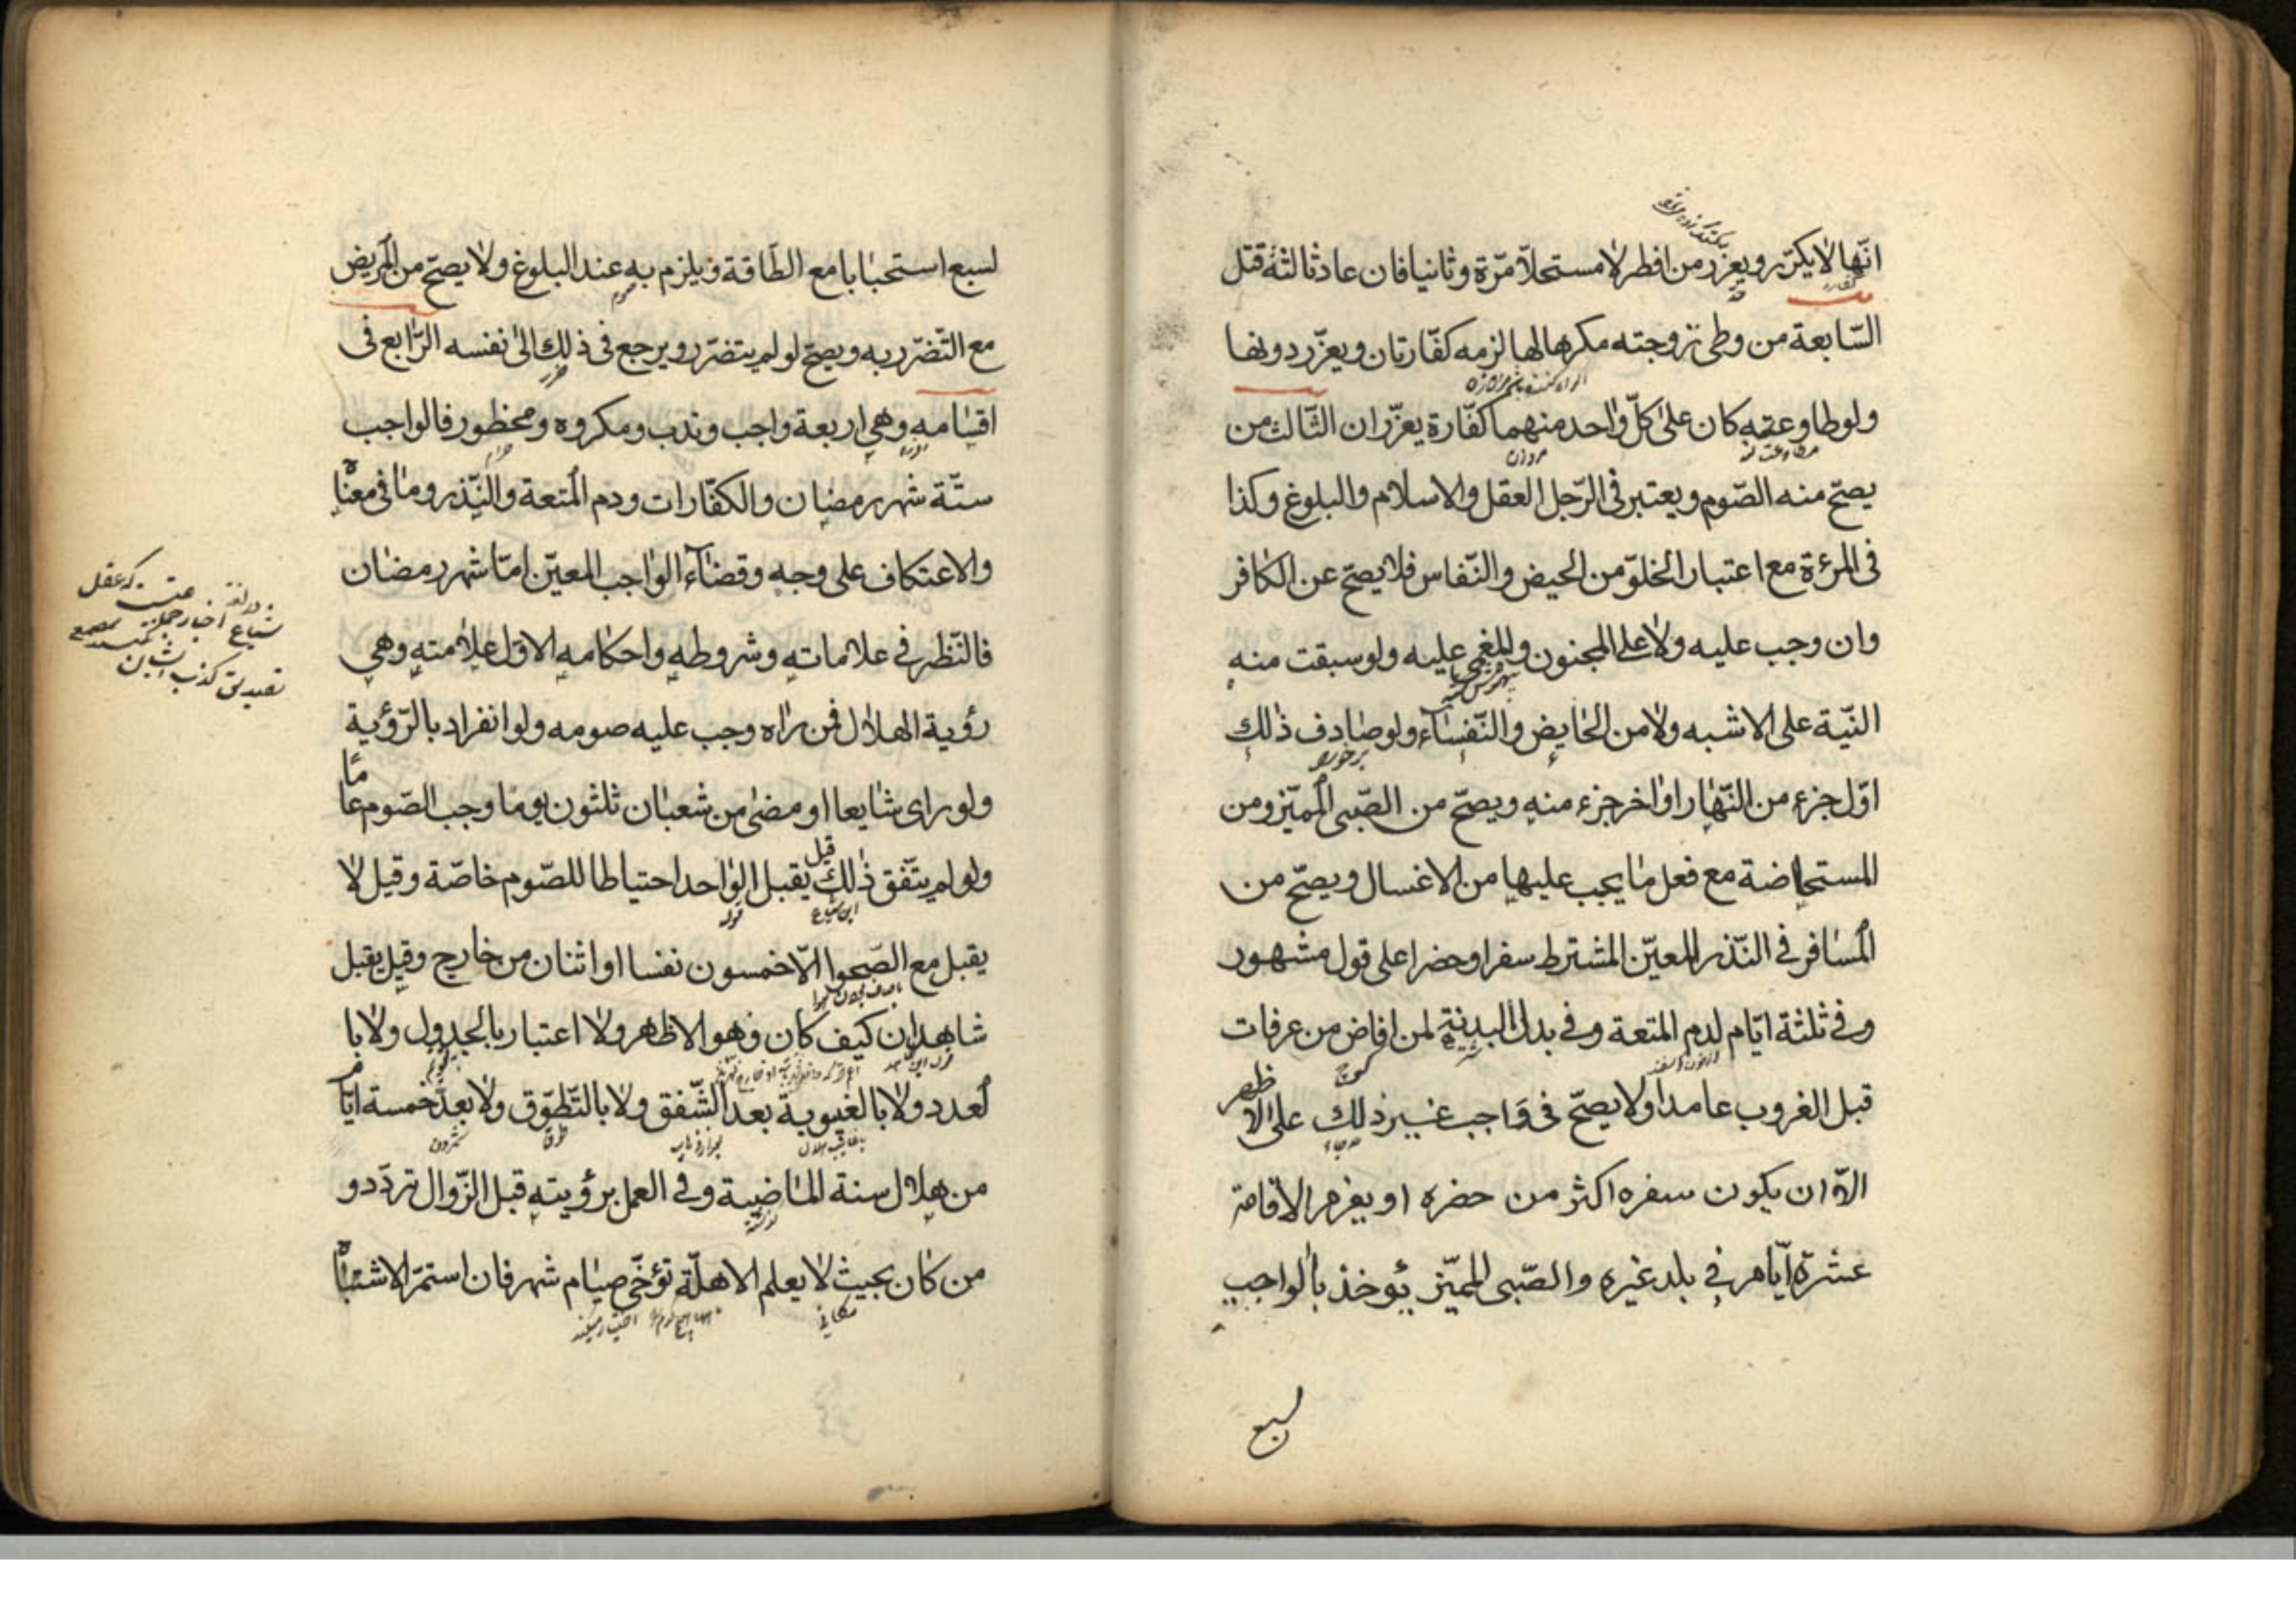 انّها لا يكرّر ويعزّر من افطر لا مستحلّا مرّة وثانيا فان عاد ثالثة قتل
السّابعة من وطئ زوجته مكرها لها لزمه كفّارتان ويعزّر دونها
ولو طاوعته كان على كلّ واحد منهما كفّارة يعزّران الثّالث من
يصحّ منه الصّوم ويعتبر فى الرّجل العقل والاسلام والبلوغ وكذا
فى المرءة مع اعتبار الخلوّ من الحيض والنّفاس فلا يصحّ عن الكافر
وان وجب عليه ولا على المجنون والمغمى عليه ولو سبقت منه
النيّة على الاشبه ولا من الحايض والنّفساء ولو صادف ذلك
اوّل جزء من النّهار او اخر جزء منه ويصحّ من الصّبى المميّز ومن
المستحاضة مع فعل ما يجب عليها من الاغسال ويصحّ من
المسافر فى النّذر المعيّن المشترط سفرا وحضرا على قول مشهور
وفى ثلثة ايّام لدم المتعة وفى بدل البدنة لمن افاض من عرفات
قبل الغروب عامدا ولا يصحّ فى واجب غير ذلك على الاظهر
الّا ان يكون سفره اكثر من حضره او يعزم الاقامة
عشرة ايّام فى بلد غيره والصّبى المميّز يؤخذ بالواجب
لسبع
لسبع استحبابا مع الطّاقة ويلزم به عند البلوغ ولا يصحّ من المريض
مع التّضرّر به ويصحّ لو لم يتضرّر ويرجع فى ذلك الى نفسه الرّابع فى
اقسامه وهى اربعة واجب وندب ومكروه ومحظور فالواجب
ستّة شهر رمضان والكفّارات ودم المتعة والنّذر وما فى معناه
والاعتكاف على وجه وقضاء الواجب المعيّن امّا شهر رمضان
فالنّظر فى علاماته وشروطه واحكامه الاوّل علامته وهى
رؤية الهلال فمن راه وجب عليه صومه ولو انفراد بالرّؤية
ولو راى شايعا او مضى من شعبان ثلثون يوما وجب الصّوم عامّا
ولو لم يتّفق ذلك قيل يقبل الواحد احتياطا للصّوم خاصّة وقيل لا
يقبل مع الصّحو الّا خمسون نفسا او اثنان من خارج وقيل يقبل
شاهدان كيف كان وهو الاظهر ولا اعتبار بالجدول ولا با
لعدد ولا بالغيبوبة بعد الشّفق ولا بالتّطوّق ولا بعدّ خمسة ايّام
من هلال سنة الماضية وفى العمل برؤيته قبل الزّوال تردّد و
من كان بحيث لا يعلم الاهلّة توخّى صيام شهر فان استمرّ الاشتباه